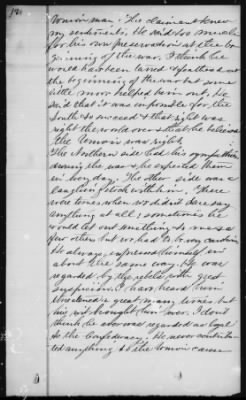 Union man. The claimant knew
my sentiments. He said too much
for his own preservation at the be-
ginning of the war. I think he
would has been tarred & feathered at
the beginning of the war but some
little moor helped him out. He
said that it was impossible for the
South to succeed & that right was
right the world over & that he believed
the Union was right.
The Northern side had his sympathies
during the war & he expected them
in every day. The other side was a
laughing stock with him. There
were times when we did not dare say
anything at all; sometimes he
would let out something to me & a
few others but we had to be very cautious
He always expressed himself in
about the same way. He was
regarded by the rebels with great
suspicion. I have heard him
threatened a great many times but
his wit brought him over. I don't
think he ever was regarded as loyal
to the Confederacy. He never contribu-
ted anything to the Union cause